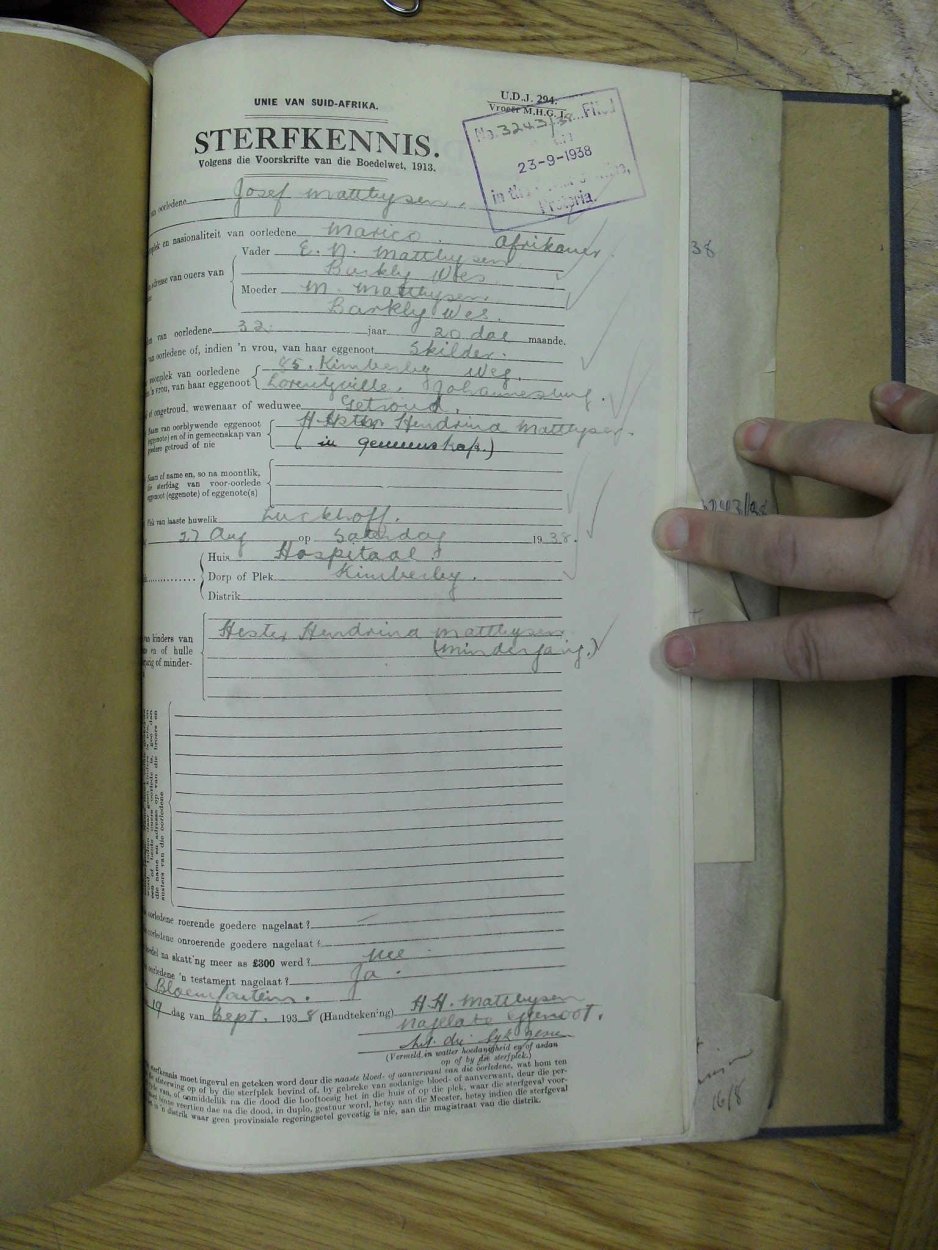 UNIE VAN SUID-AFRIKA.
U.D.J. 294.
Vroeër M.H.G. I.
STERFKENNIS.
Volgens die Voorskrifte van die Boedelwet, 1913.
No. 3243/38 Filed
23-9-1938
in the
Pretoria.
van oorledene Josef Matthysen.
en nasionaliteit van oorledene Marico. Afrikaner
38
Vader E. N. Matthysen
adresse van ouers van
Barkly Wes
Moeder M. Matthysen
Barkly Wes.
van oorledene 32 jaar 20 dae maande.
van oorledene of, indien 'n vrou, van haar eggenoot Skilder.
van oorledene 85, Kimberley Weg.
'n vrou, van haar eggenoot Lorentzville. Johannesburg.
ongetroud, wewenaar of weduwee Getroud.
Naam van oorblywende eggenoot Hester Hendrina Matthysen.
(eggenote) en of in gemeenskap van
goedere getroud of nie (in gemeenskap.)
Naam of name en, so na moontlik,
die sterfdag van voor-oorlede
eggenoot (eggenote) of eggenote(s)
3243/38
Plek van laaste huwelik Luckhoff.
27 Aug op Saterdag 1938.
Huis Hospitaal
Dorp of Plek Kimberley.
Distrik
van kinders van Hester Hendrina Matthysen
en of hulle (minderjarig.)
of minder-
die name en adresse op van die broers en
susters van die oorledene
oorledene roerende goedere nagelaat?
oorledene onroerende goedere nagelaat?
na skatt'ng meer as £300 werd? Nee
oorledene 'n testament nagelaat? Ja.
Bloemfontein.
19 dag van Sept. 1938 (Handteken'ng) H.H. Matthysen
Nagelate Egenoot.
(Vermeld in watter hoedanigheid en of aldan
op of by die sterfplek.)
sterfkennis moet ingevul en geteken word deur die naaste bloed- of aanverwant van die oorledene, wat hom ten
op of by die sterfplek bevind of, by gebreke van sodanige bloed- of aanverwant, deur die per-
onmiddelik na die dood die hooftoesig het in die huis of op die plek, waar die sterfgeval voor-
veertien dae na die dood, in duplo, gestuur word, hetsy aan die Meester, hetsy indien die sterfgeval
'n distrik waar geen provinsiale regeringsetel gevestig is nie, aan die magistraat van die distrik.
16/8